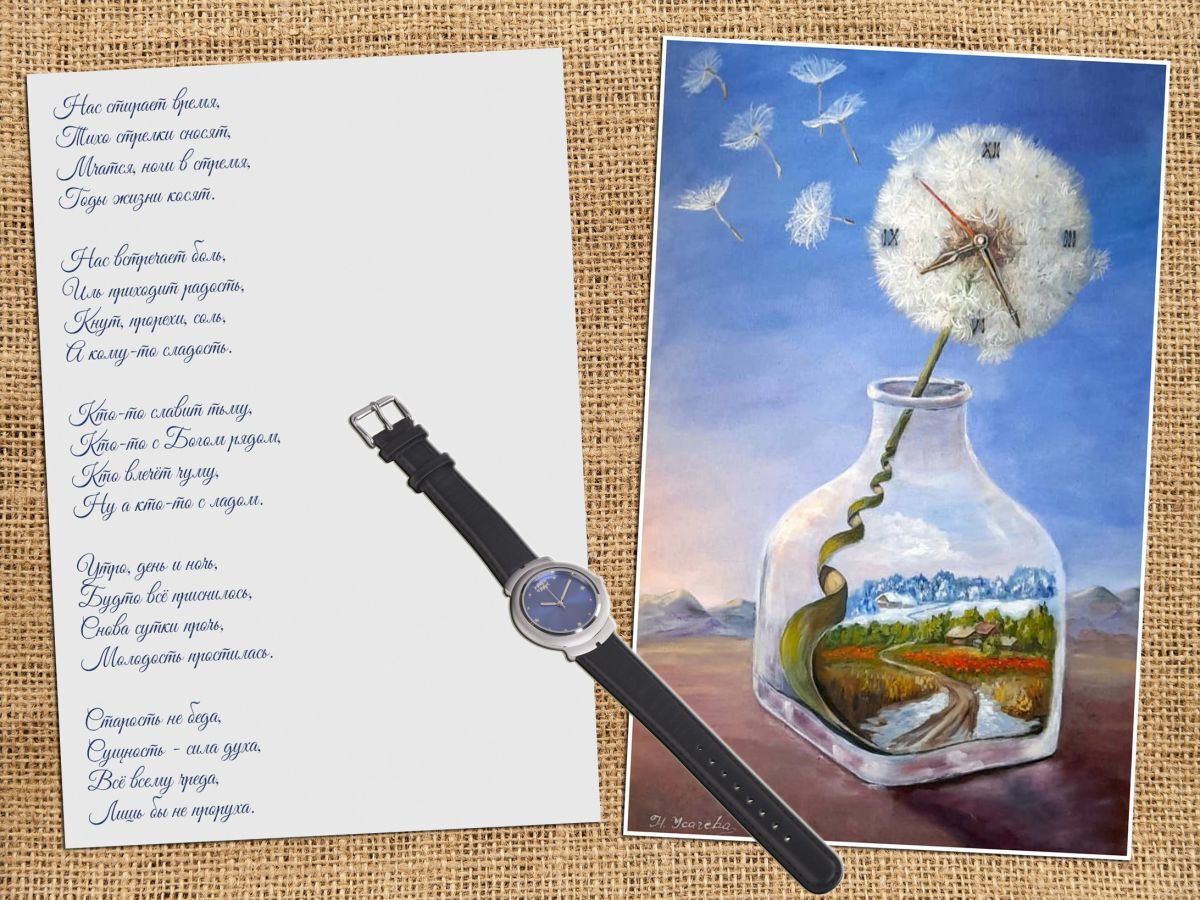 Нас стирает время,
Тихо стрелки сносят,
Мчатся, ноги в стремя,
Годы жизни косят.
Нас встречает боль,
Иль приходит радость,
Кнут, прорехи, соль,
А кому-то сладость.
Кто-то славит тьму,
Кто-то с Богом рядом,
Кто влечёт чуму,
Ну а кто-то с ладом.
Утро, день и ночь,
Будто всё приснилось,
Снова сутки прочь,
Молодость простилась.
Старость не беда,
Сущность - сила духа,
Всё всему чреда,
Лишь бы не проруха.
XII
IX
III
VI
Н. Усачева